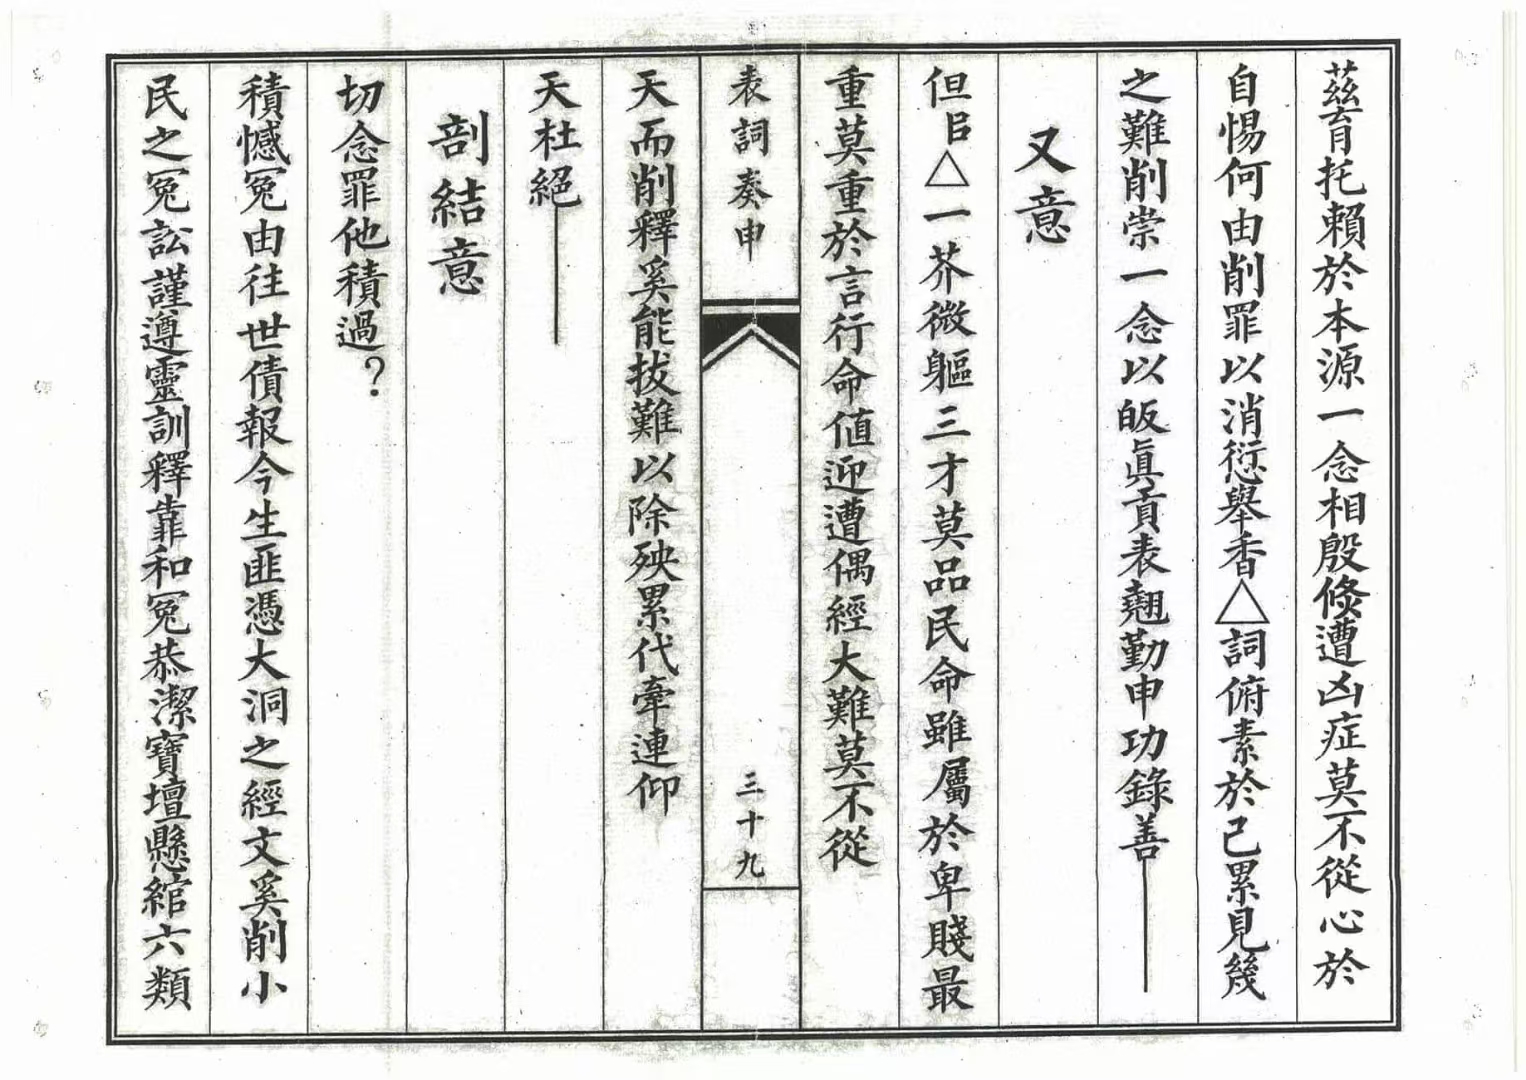 茲育托賴於本源一念相殷倐遭凶症莫不從心於
自惕何由削罪以消愆舉香△詞俯素於己累見幾
之難削祟一念以皈眞貢表翹勤申功錄善
又意
但㠯△一芥微軀三才莫品民命雖屬於卑賤最
重莫重於言行命値迎遭偶經大難莫不從
表詞奏申
三十九
天而削釋奚能拔難以除殃累代牽連仰
天杜絕
剖結意
切念罪他積過？
積憾冤由往世債報今生匪憑大洞之經文奚削小
民之冤訟謹遵靈訓釋靠和冤恭潔寶壇懸綰六類